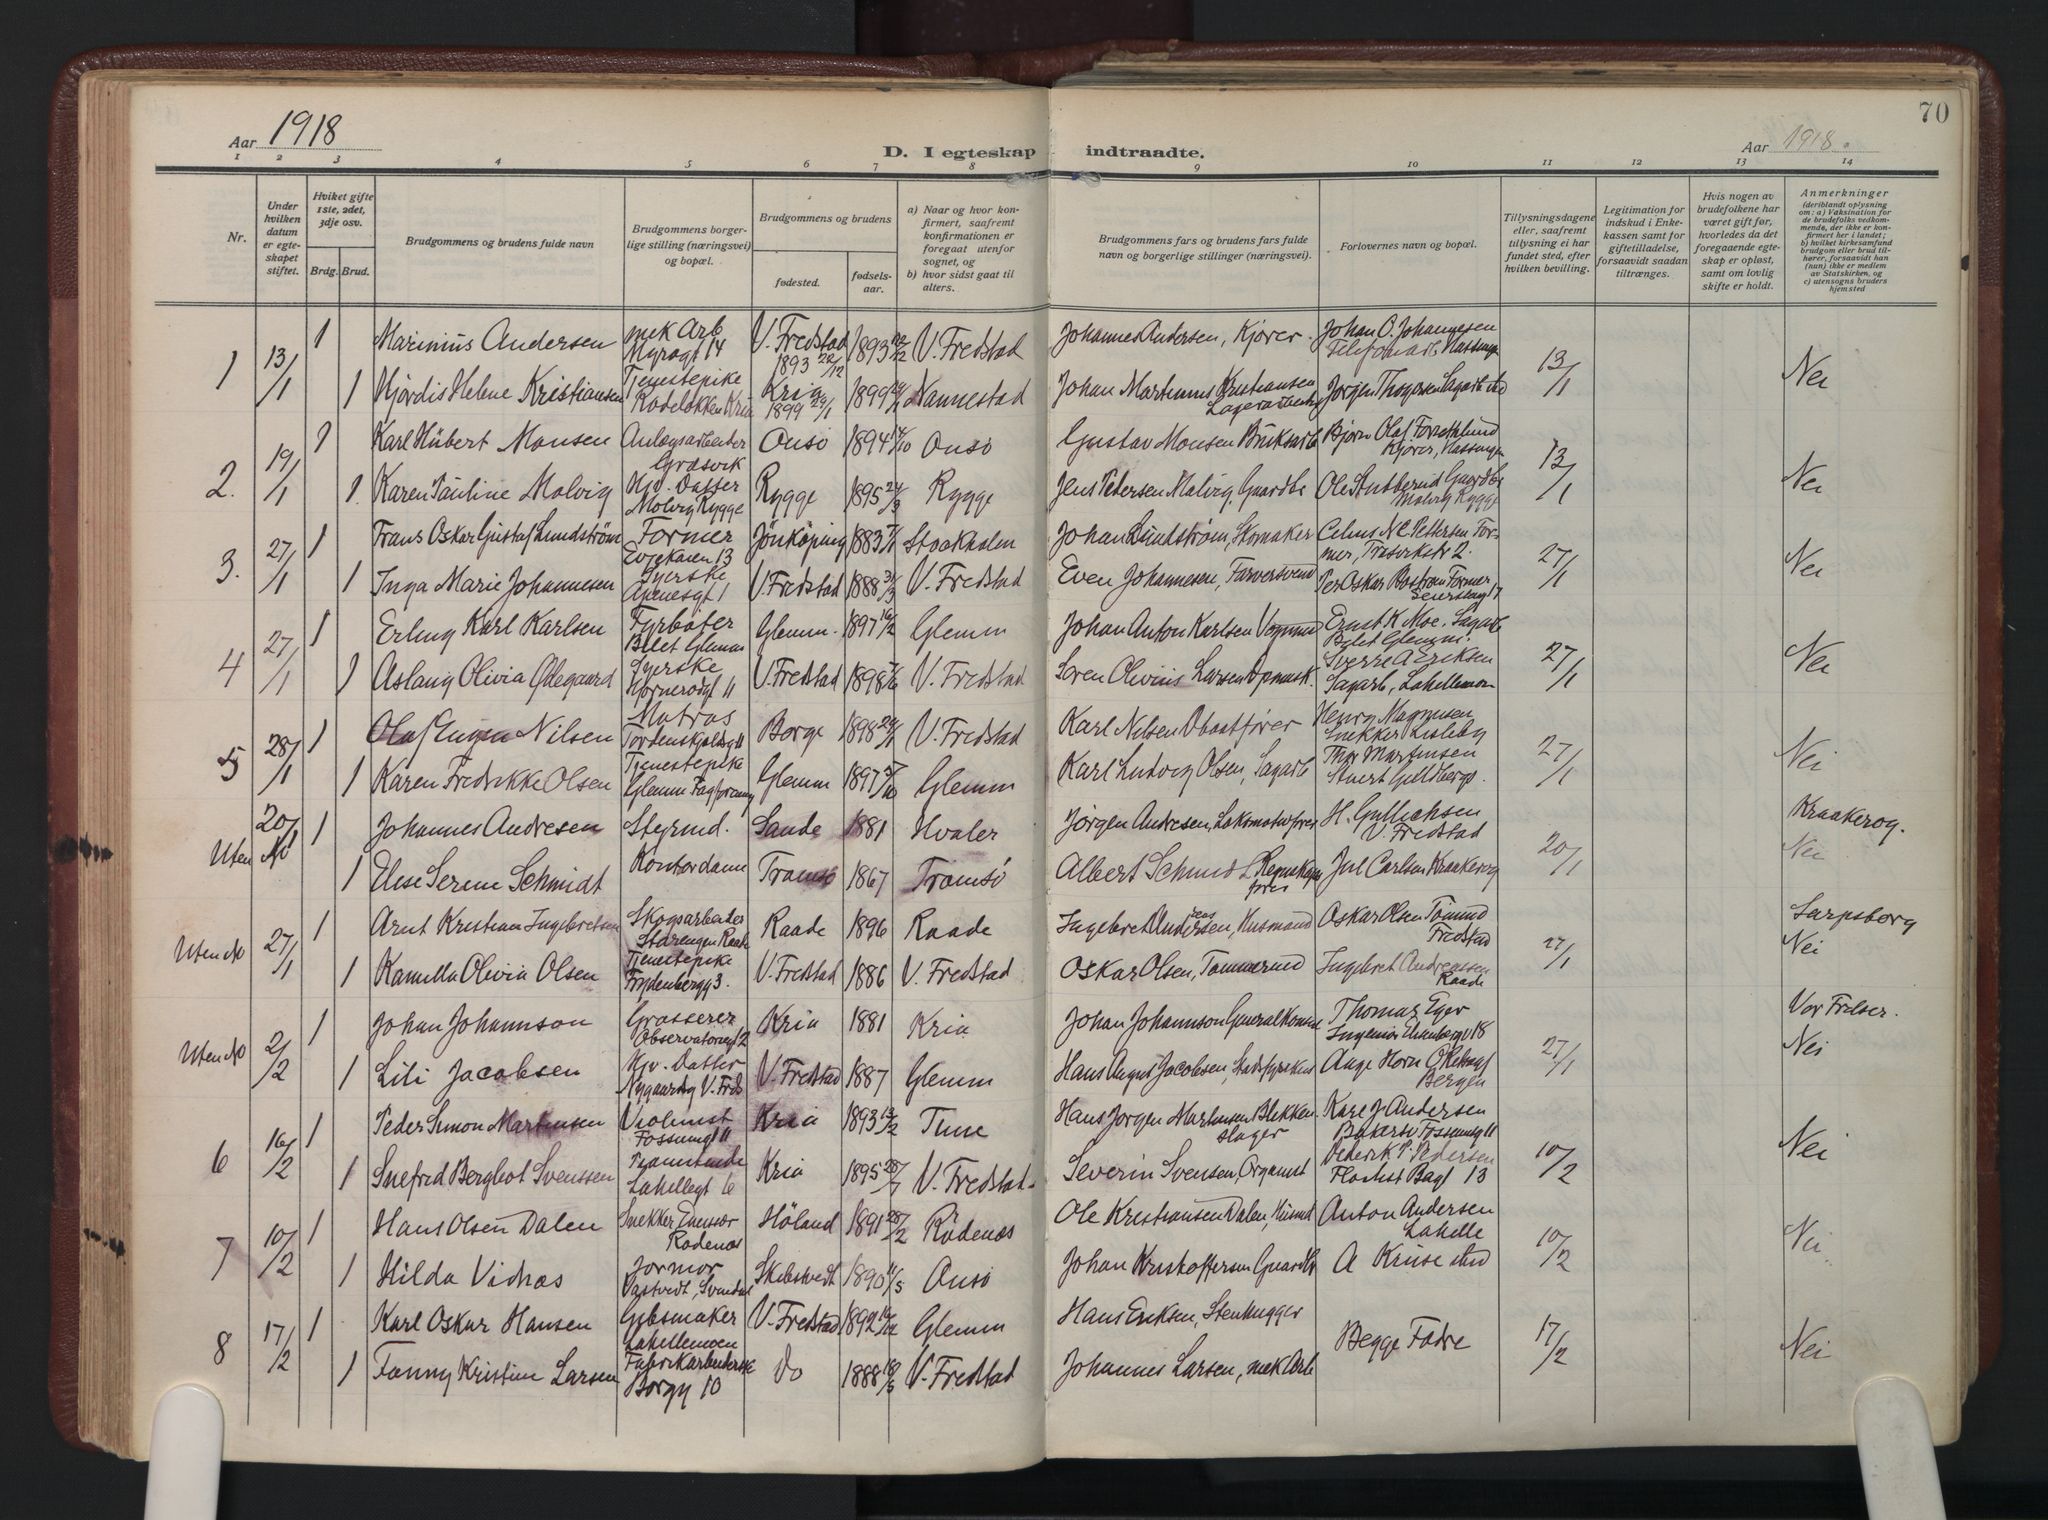 70
Aar 1918
D. I egteskap indtraadte.
Aar 1918.
1 2 3 4 5 6 7 8 9 10 11 12 13 14
Nr.
Under hvilken datum er egteskapet stiftet.
Hvilket gifte 1ste, 2det, 3dje osv.
Brdg. Brud.
Brudgommens og brudens fulde navn
Brudgommens borgerlige stilling (næringsvei) og bopæl.
Brudgommens og brudens
fødested.
fødselsaar.
a) Naar og hvor konfirmert, saafremt konfirmationen er foregaat utenfor sognet, og
b) hvor sidst gaat til alters.
Brudgommens fars og brudens fars fulde navn og borgerlige stillinger (næringsvei).
Forlovernes navn og bopæl.
Tillysningsdagene eller, saafremt tillysning ei har fundet sted, efter hvilken bevilling.
Legitimation for indskud i Enkekassen samt for giftetilladelse, forsaavidt saadan tiltrænges.
Hvis nogen av brudefolkene har været gift før, hvorledes da det foregaaende egteskap er opløst, samt om lovlig skifte er holdt.
Anmerkninger
(deriblandt oplysning om: a) Vaksination for de brudefolks vedkommende, der ikke er konfirmert her i landet; b) hvilket kirkesamfund brudgom eller brud tilhører, forsaavidt han (hun) ikke er medlem av Statskirken, og c) utensogns bruders hjemsted
1 13/1 1 Marinius Andersen mek Arb Myragt 14 V. Fredstad 1893 22/12 1893 22/12 V. Fredstad Johannes Andersen, Kjører. Johan O. Johannesen 13/1 Nei
1 Hjørdis Helene Kristiansen Tjenestepike Rodeløkken Kria Kria 1899 29/1 1899 29/1 Nannestad Johan Martinius Kristiansen
2. 19/1 1 Karl Hubert Monsen Anlægsarbeider Græsvik Onsø 1894 14/10 Onsø Gustav Monsen Bruksarb 13/1 Nei
1. Karen Pauline Molvig Hjv. Datter Molvig Rygge Rygge 1895 24/3 Rygge Jens Petersen Molvig, Gaardbr Ole Stubberud Gaardbr Molvig Rygge
3. 27/1 1 Frans Oskar Gustaf Lundström Former Evjekaien 13 Jönköping 1883 7/1 Stockholm Johan Lundstrøm, Skomaker 27/1 Nei
1 Inga Marie Johannesen Syerske V. Fredstad 1888 31/3 V. Fredstad Even Johannesen, Farversvend Per Oskar Bostrøm Former
4 27/1 1 Erling Karl Karlsen Fyrbøter Glemm. 1897 16/2 Glemm Johan Anton Karlsen Vognmd Ernst K. Moe, Sagarb 27/1 Nei
1 Aslaug Olivia Ødegaard Syerske V. Fredstad 1898 V. Fredstad Søren Olivius Larsen Sverre A Eriksen Sagarb, Lahellemoen
5 28/1 1 Olaf Eugen Nilsen Matros Borge 1898 V. Fredstad Karl Nilsen Henry Magnusen Snekker Lisleby 27/1 Nei
1 Karen Fredrikke Olsen Tjenestepike Glemm 1897 Glemm Karl Ludvig Olsen, Sagarb Thor Martinsen
Uten No 20/1 1 Johannes Andresen Styrmd. Sande 1881 Hvaler Jørgen Andresen, H. Gullichsen V. Fredstad 20/1 Kraakerøy. Nei
1 Elise Serene Schmidt Kontordame Tromsø 1867 Tromsø Albert Schmidt Jul Carlsen Kraakerøy
Uten No 27/1 1 Arnt Kristian Ingebretsen Skogsarbeider Raade 1896 Raade Husmand Oskar Olsen Tømmd Fredstad 27/1 Sarpsborg Nei
1 Kamilla Olivia Olsen Tjenestepike Frydenberg 3. V. Fredstad 1886 V. Fredstad Oskar Olsen, Tømmermd Ingebret Andreassen Raade
Uten No 2/2 1 Johan Johannson Grosserer Observatoriegt 12 Kria 1881 Kria Johan Johannson Generalkonsul Thomas Eger 27/1 Vor Frelser. Nei
1 Lili Jacobsen Hjv. Datter V. Fredstad 1887 Glemm Hans August Jacobsen, Aage Horn Bergen
6 16/2 1 Peder Simon Martinsen Violinist Kria 1893 13/2 Tune Hans Jørgen Martinsen Blikkenslager Kare J. Andersen 10/2 Nei
1 Snefred Bergliot Svenssen Kria 1895 V. Fredstad. Severin Svensen, Organist Dederik P. Pedersen
7 10/2 1 Hans Olsen Dalen Snekker Rødenæs Høland 1891 28/2 Rødenæs Ole Kristiansen Dalen, Anton Andersen Lahelle 10/2 Nei
1 Hilda Vidnæs Jormor Skibtvedt 1890 Onsø Johan Kristoffersen Gaardbr A Kruse sted
8 17/2 1 Karl Oskar Hansen Gibsmaker Lahellemoen V. Fredstad 1892 Glemm Hans Eriksen, Stenhugger Begge Fædre 17/2 Nei
1 Fanny Kristine Larsen Fabrikarbeiderske Borgg 10 do 1888 V. Fredstad Johannes Larsen, mek Arb